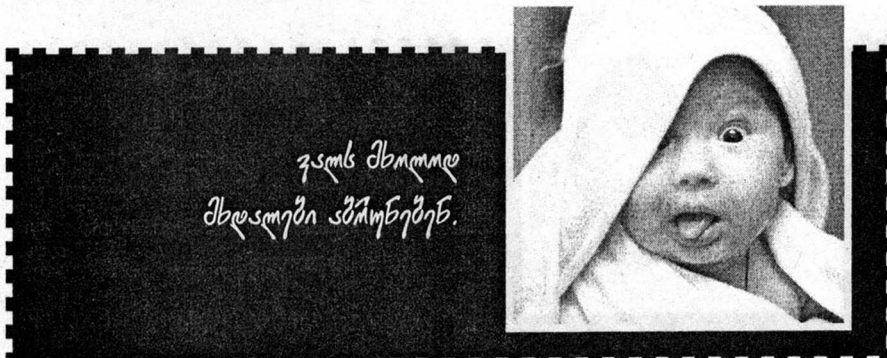 ვალს მხოლოდ
მხდალები აბრუნებენ.